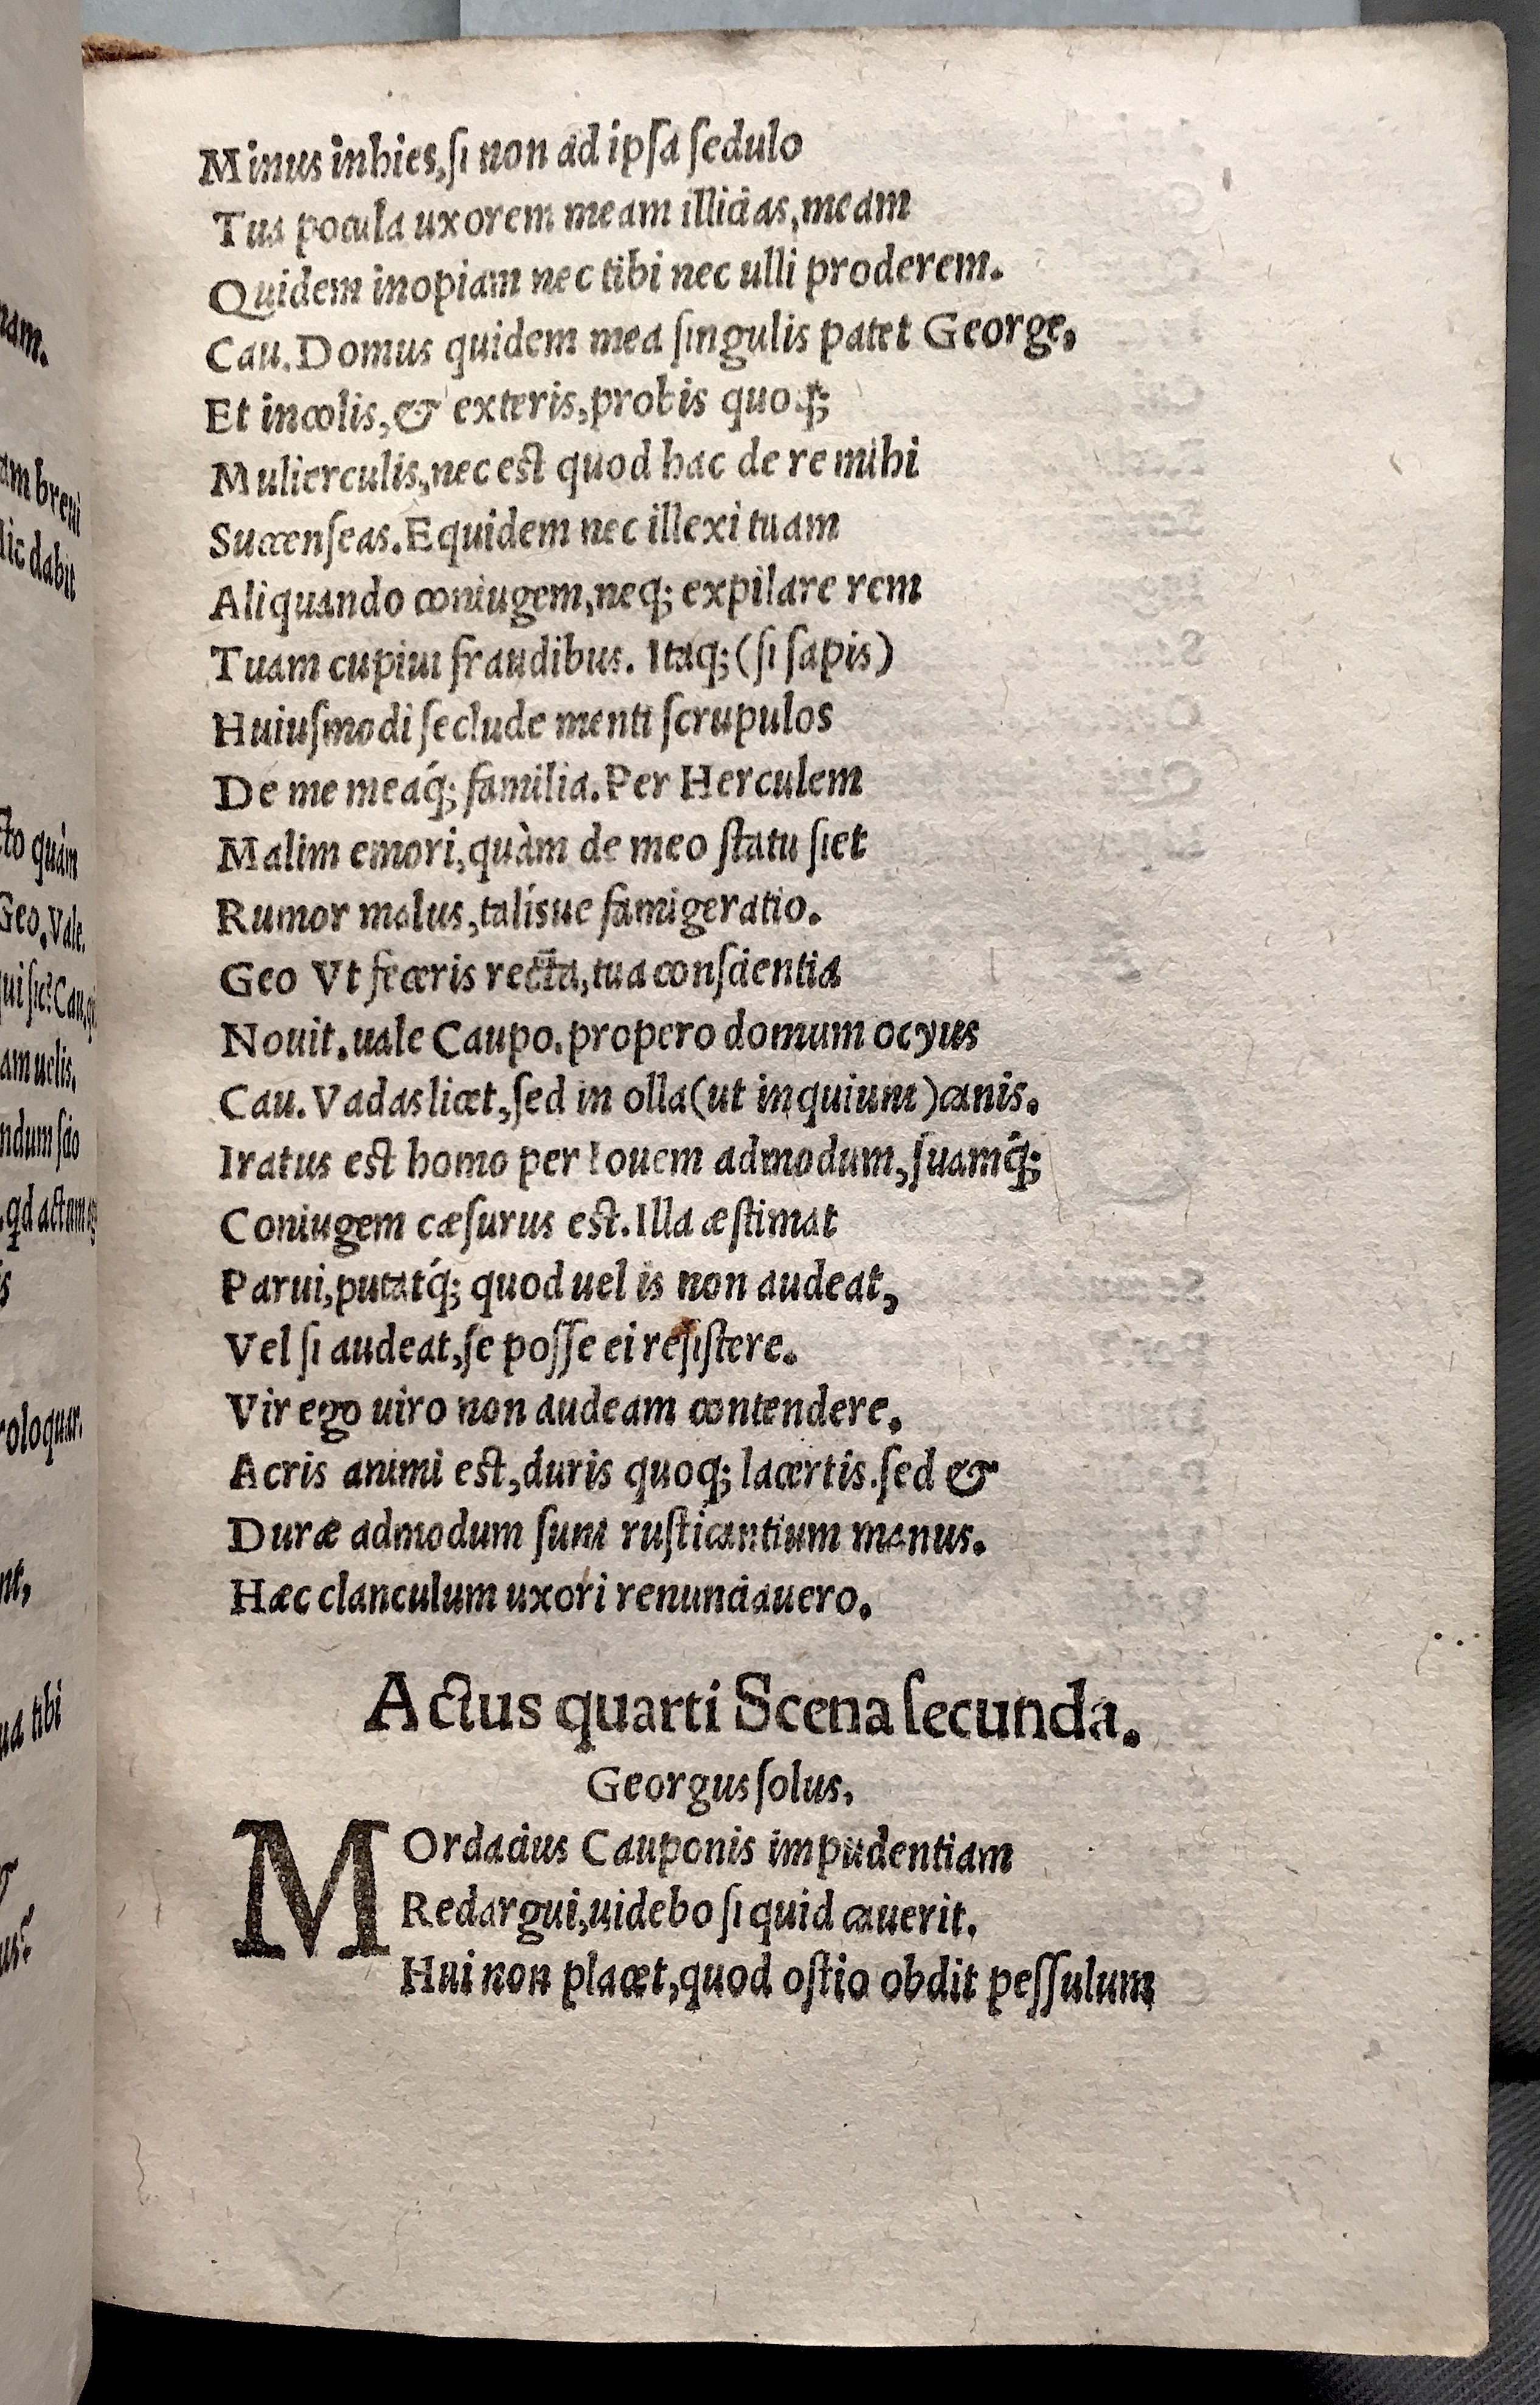 Minus inhies,ſi non ad ipſa ſedulo
Tua pocula uxorem meam illicias,meam
Quidem inopiam nec tibi nec ulli proderem.
Cau.Domus quidem mea ſingulis patet George,
Et incolis,& exteris,probis quoq́;
Mulierculis,nec est quod hac de re mihi
Succenſeas.Equidem nec illexi tuam
Aliquando coniugem,neq; expilare rem
Tuam cupiui fraudibus. Itaq;(ſi ſapis)
Huiuſmodi ſeclude menti ſcrupulos
De me meaq́; familia.Per Herculem
Malim emori,quàm de meo ſtatu ſiet
Rumor malus,talísue famigeratio.
Geo Vt feceris rectà,tua conſcientia
Nouit.uale Caupo.propero domum ocyus
Cau.Vadas licet,ſed in olla(ut inquiunt)canis.
Iratus est homo per Iouem admodum,ſuamq́;
Coniugem cæſurus est.Illa æſtimat
Parui,putatq́; quod uel is non audeat,
Vel ſi audeat,ſe poſſe ei reſiſtere.
Vir ego uiro non audeam contendere,
Acris animi est,duris quoq; lacertis.ſed &
Duræ admodum ſunt ruſticantium manus.
Hæc clanculum uxori renunciauero.
Actus quarti Scena ſecunda.
Georgus ſolus,
MOrdacius Cauponis impudentiam
Redargui,uidebo ſi quid cauerit.
Hui non placet,quod oſtio obdit peſſulum
nam.
am breui
lic dabit
cto quàm
Geo.Vale.
qui ſic? Cau.
am uelis.
ndum ſcio
qd actum
is
roloquar.
nt,
ua tibi
us?